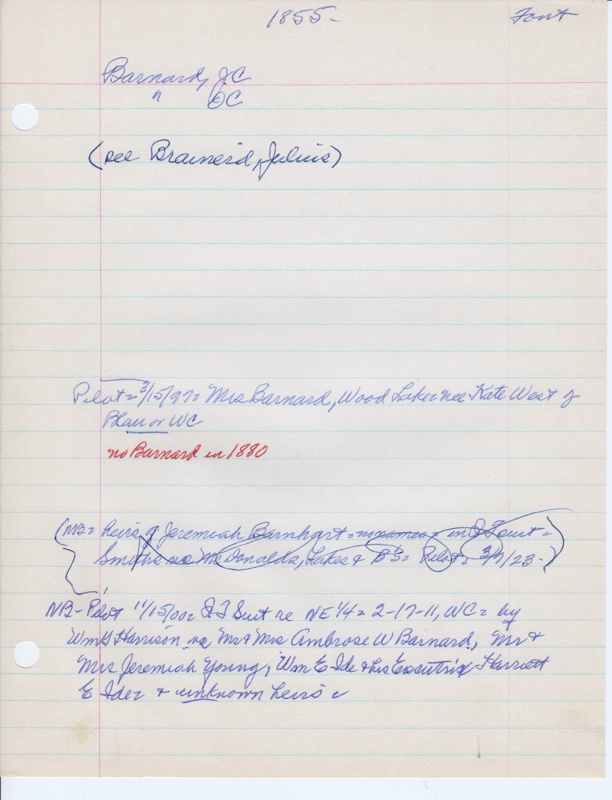 1855- Font
Barnard, JC
" OC
(see Brainerd, Julius)
Pilot = 3/15/97= Mrs Barnard, Wood Lake= nee Kate West of
Plau or WC
no Barnard in 1880
(NB= heirs of Jeremiah Barnhart = no names = in Suit =
Smiths vs McDonalds, Lakes & = Pilot = 3/1/23-)
NB- Pilot 11/15/00= QT Suit re NE 1/4= 2-17-11, WC= by
Wm H Harrison vs Mr & Mrs Ambrose W Barnard, Mr &
Mrs Jeremiah Young, Wm E Ide & his Executrix Harriett
E Ide= & unknown heirs